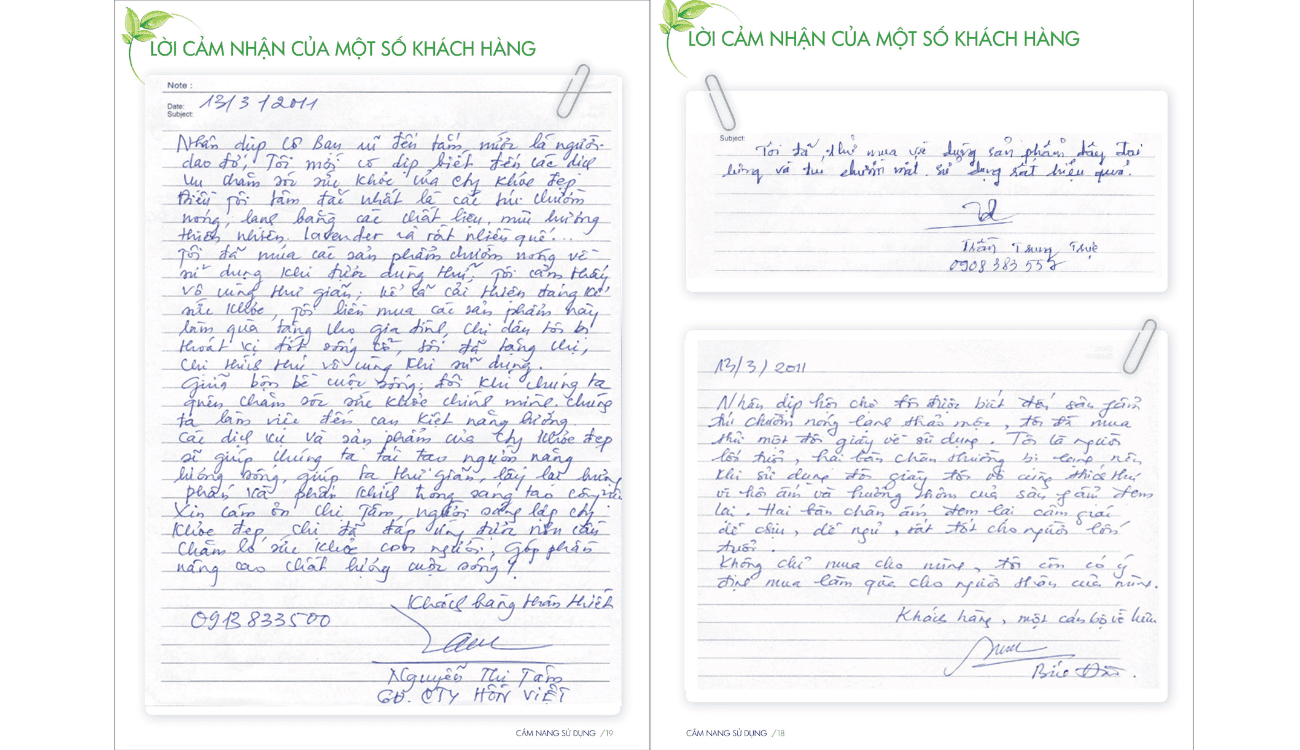 LỜI CẢM NHẬN CỦA MỘT SỐ KHÁCH HÀNG
Note :
Date: 13/3/2011
Subject:
Nhân dịp cô bạn đến tắm, mức là người
dao đỏ, Tôi mới có dịp biết đến các dịch
vụ chăm sóc sức khỏe của Cty Khỏe đẹp
Điều tôi tâm đắc nhất là các túi chườm
nóng, lạnh bằng các chất liệu, mùi hương
thiên nhiên. lavender và rất nhiều quế...
Tôi đã mua các sản phẩm chườm nóng về
sử dụng khi được dùng thử, Tôi cảm thấy
vô cùng thư giãn, kể cả cải thiện đáng kể
sức khỏe, tôi liền mua các sản phẩm này
làm quà tặng cho gia đình, chị dâu tôi bị
thoát vị đốt sống cổ, tôi đã tặng chị,
chị thích thú vô cùng khi sử dụng.
Giữa bộn bề cuộc sống, đôi khi chúng ta
quên chăm sóc sức khỏe chính mình. chúng
ta làm việc đến cạn kiệt năng lượng.
các dịch vụ và sản phẩm của Cty Khỏe đẹp
sẽ giúp chúng ta tái tạo nguồn năng
lượng sống, giúp ta thư giãn, lấy lại hưng
phấn và phấn khích trong sáng tạo công việc
Xin cảm ơn chị Tâm, người sáng lập cty
Khỏe đẹp, chị đã đáp ứng được nhu cầu
chăm lo sức khỏe con người, góp phần
nâng cao chất lượng cuộc sống!
Khách hàng thân thiết
0913833500
Nguyễn Thị Tâm
GĐ. CTY HỒN VIỆT
CẨM NANG SỬ DỤNG /19
LỜI CẢM NHẬN CỦA MỘT SỐ KHÁCH HÀNG
Subject:
Tôi đã thử mua và dụng sản phẩm dây đai
lưng và túi chườm mát. sử dụng rất hiệu quả.
Trần Trung Trực
0908 383 557
13/3/2011
Nhân dịp hội chợ tôi được biết đến sản phẩm
túi chườm nóng lạnh thảo mộc, tôi đã mua
thử một đôi giầy về sử dụng. Tôi là người
lớn tuổi, hai bàn chân thường bị lạnh nên
khi sử dụng đôi giầy tôi vô cùng thích thú
vì hơi ấm và hương thơm của sản phẩm đem
lại. Hai bàn chân ấm đem lại cảm giác
dễ chịu, dễ ngủ, rất tốt cho người lớn
tuổi.
Không chỉ mua cho mình, tôi còn có ý
định mua làm quà cho người thân của mình.
Khách hàng, một cán bộ về hưu
CẨM NANG SỬ DỤNG /18